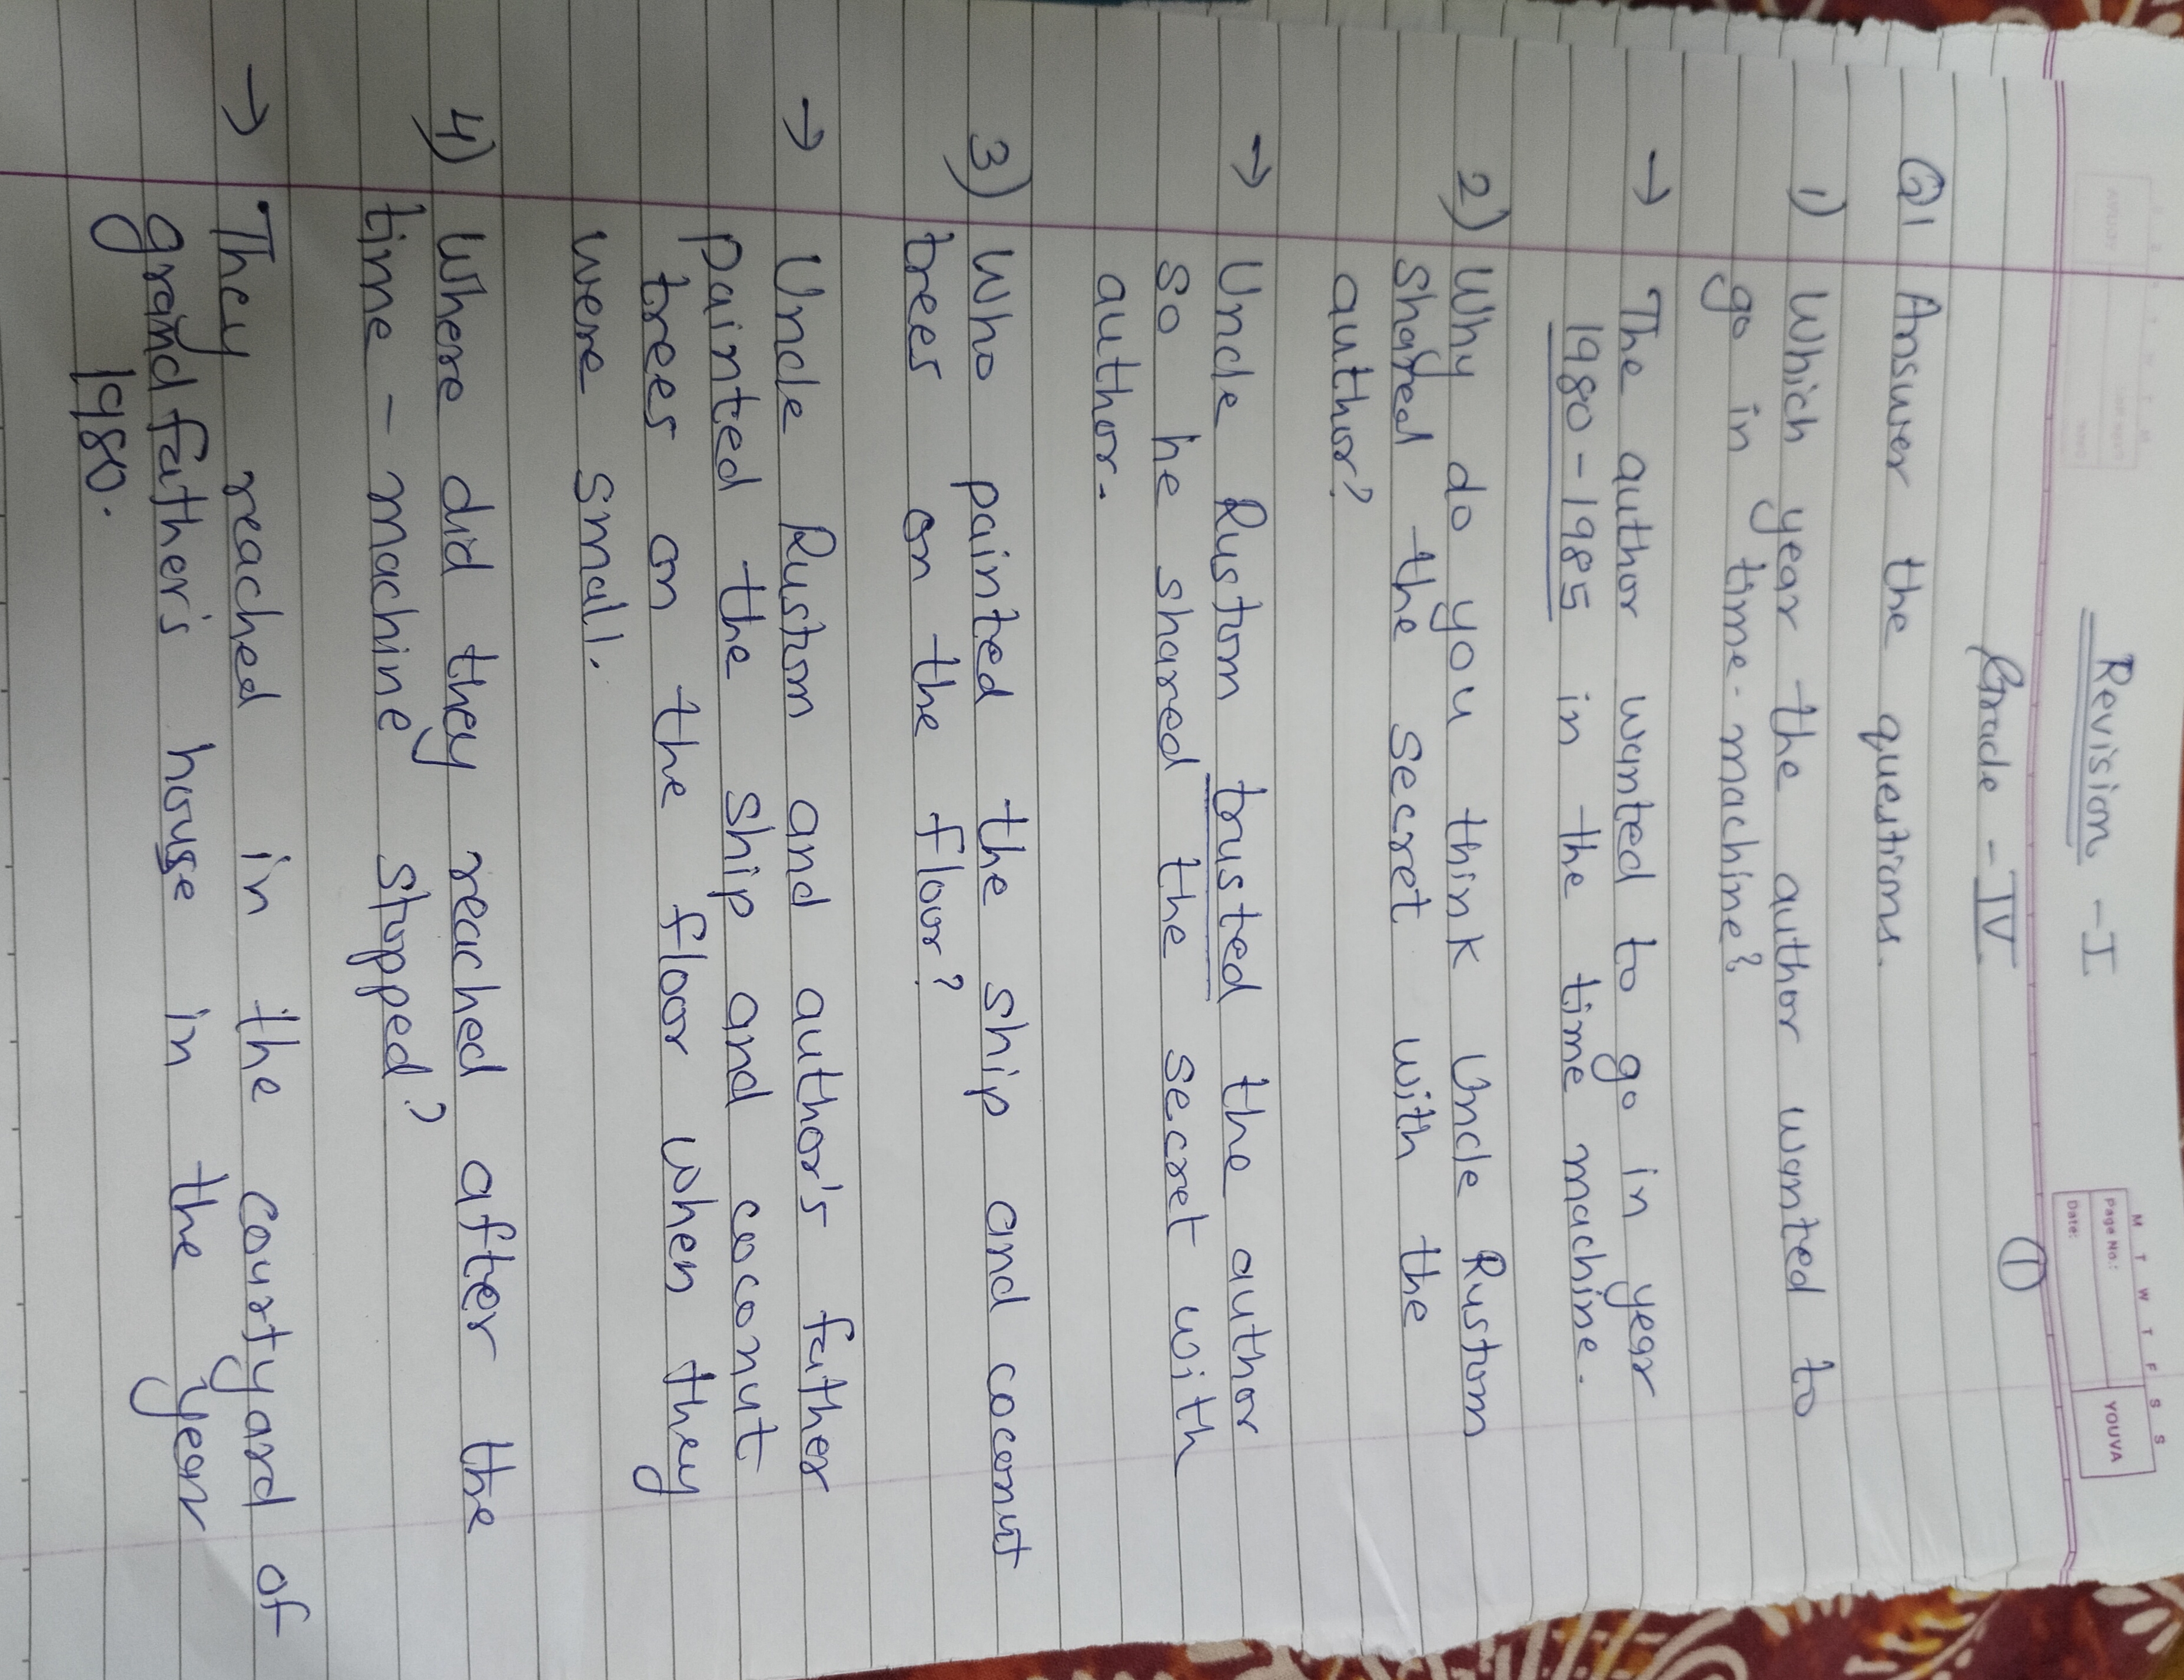 Revision - I
M T W T F S S
Page No.:
Date:
YOUVA
Grade - IV
①
Q1 Answer the questions.
1) Which year the author wanted to
go in time-machine?
→ The author wanted to go in year
1980-1985 in the time machine.
2) Why do you think Uncle Rustom
shared the secret with the
author?
→ Uncle Rustom trusted the author
so he shared the secret with
author.
3) Who painted the ship and coconut
trees on the floor?
→ Uncle Rustom and author's father
painted the ship and coconut
trees on the floor when they
were small.
4) Where did they reached after the
time-machine stopped?
→ They reached in the courtyard of
grandfather's house in the year
1980.